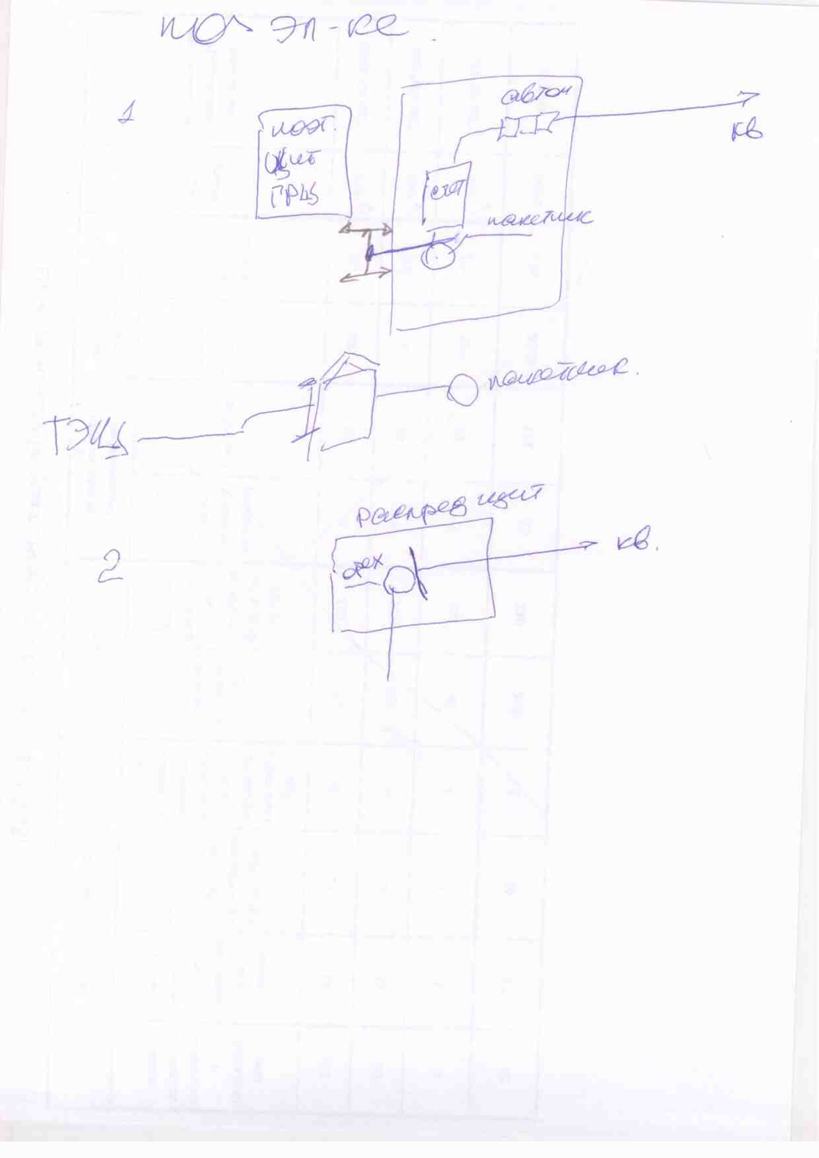 по эл-ке
1
поэт.
щит
ГРЩ
автом
кв
счет
пакетник
ТЭЦ
пакетник.
2
Распред щит
орех
кв.